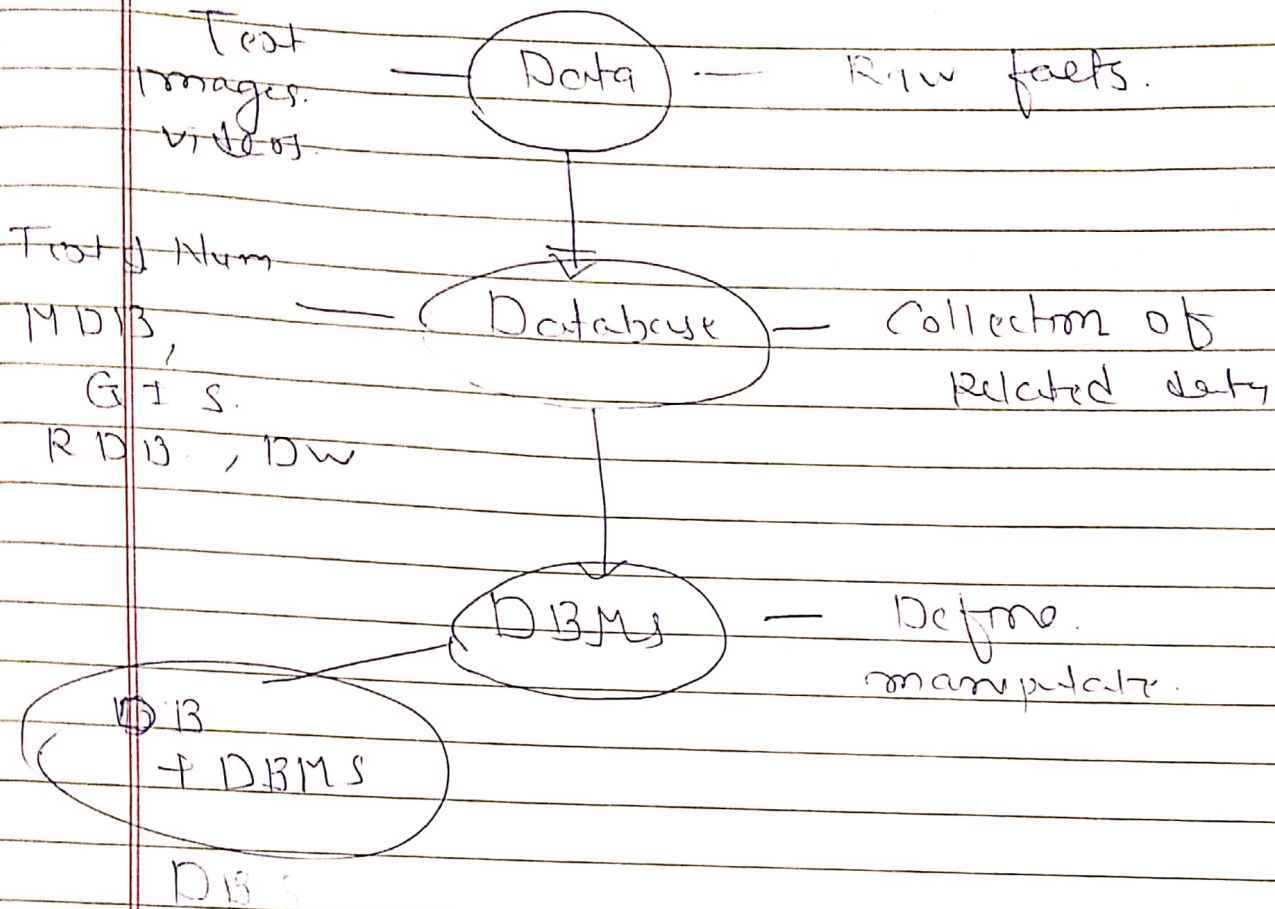 Text
Images.
videos.
Data
— Raw facts.
Text & Num
MDB,
GIS.
RDB, DW
Database
— Collection of
Related data
DBMS
— Define.
manipulate.
DB
+ DBMS
DBS